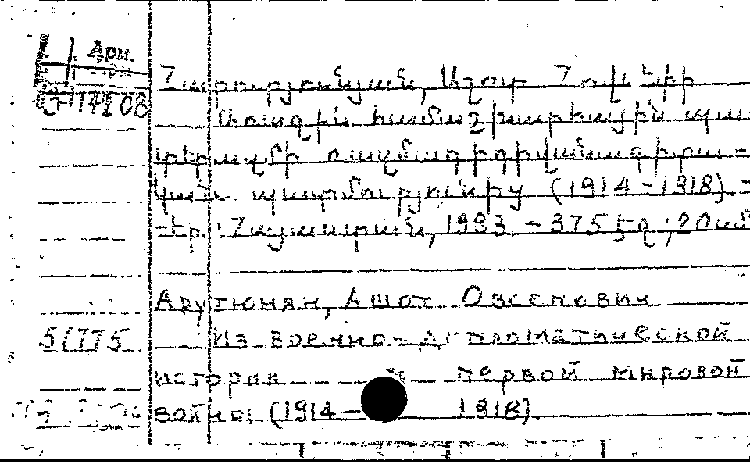 Арм.
Հարությունյան, Աշոտ Հովսեփի
Առաջին համաշխարհային պա-
տերազմի ռազմադիվանագիտա-
կան պատմությունից (1914-1918). -
Եր.: Հայաստան, 1983. - 375 էջ; 20սմ
Арутюнян, Ашот Овсепович
51775 Из военно-дипломатической
истории первой мировой
войны (1914 - 1918).